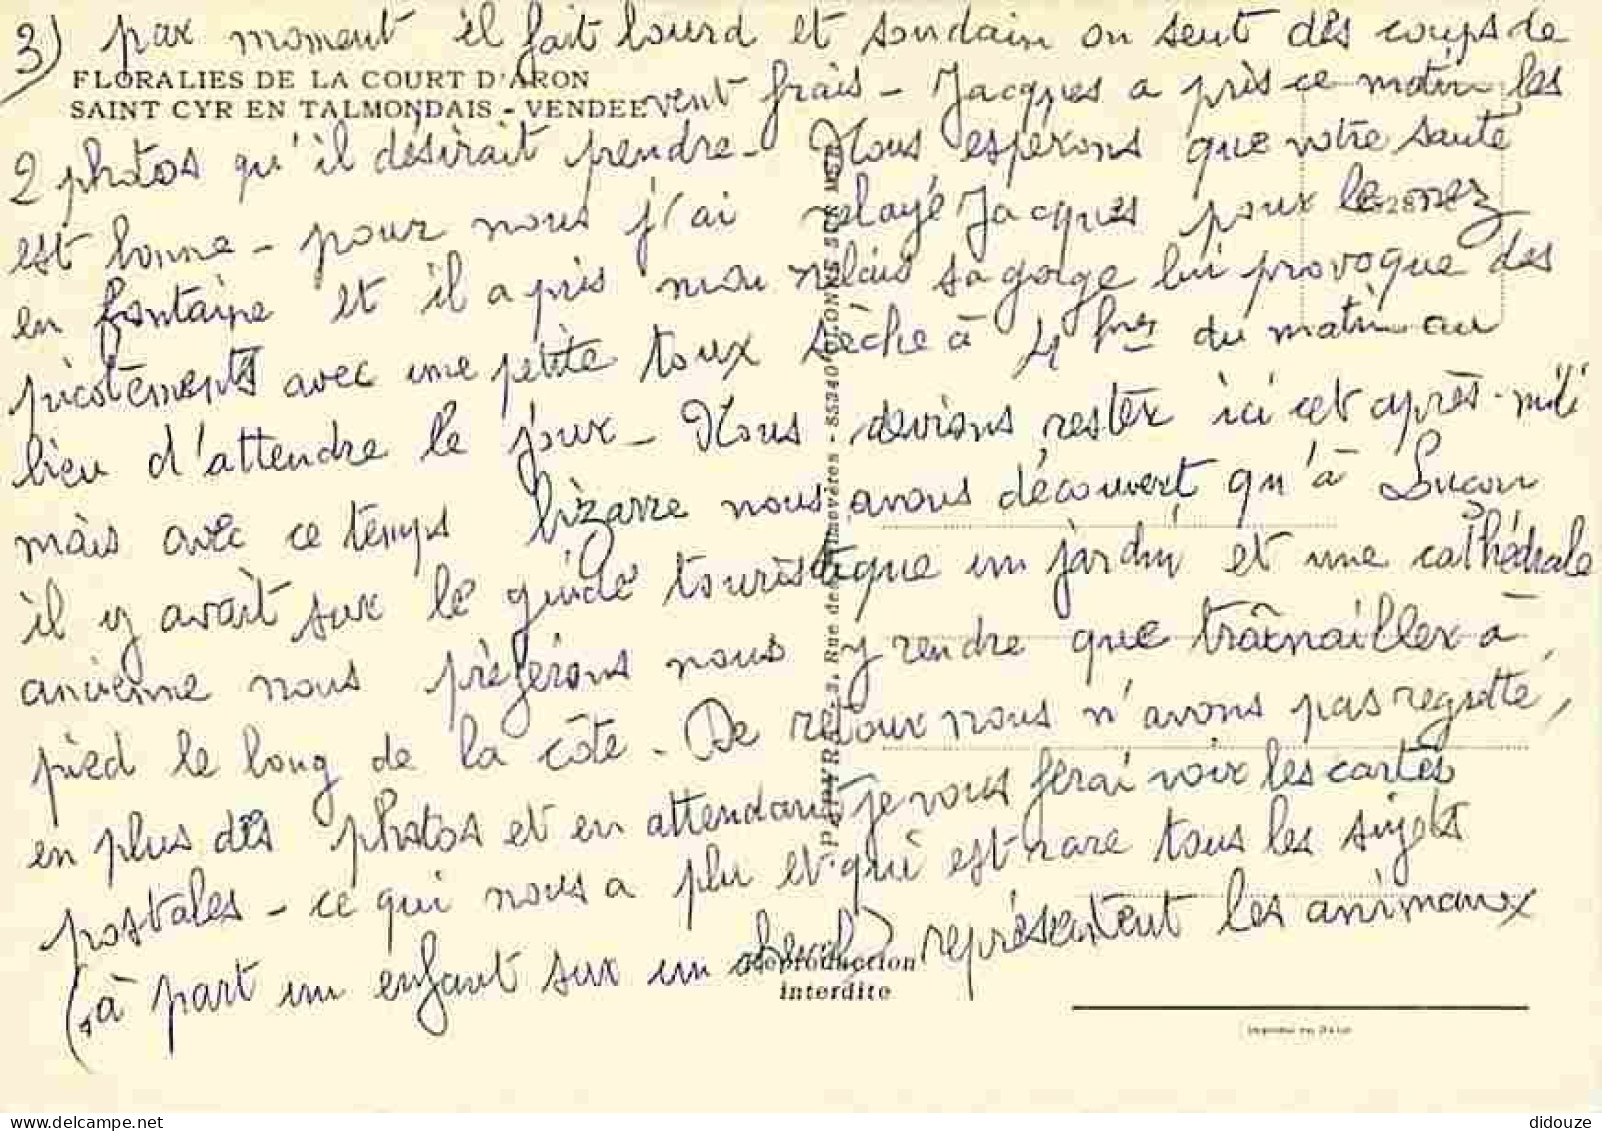 3) par moment il fait lourd et soudain on sent des coups de
FLORALIES DE LA COURT D'ARON
SAINT CYR EN TALMONDAIS - VENDEE
vent frais - Jacques a pris ce matin les
2 photos qu'il désirait prendre - Nous espérons que votre santé
est bonne - pour nous j'ai relayé Jacques pour le nez
en fontaine et il a pris mon relais sa gorge lui provoque des
picotements avec une petite toux sèche à 4 hres du matin au
lieu d'attendre le jour - Nous devions rester ici cet après-midi
mais avec ce temps bizarre nous avons découvert qu'à Luçon
il y avait sur le guide touristique un jardin et une cathédrale
ancienne nous préférons nous y rendre que traînailler à
pied le long de la côte - De retour nous n'avons pas regretté,
en plus des photos et en attendant je vous ferai voir les cartes
postales - ce qui nous a plu et qui est rare tous les sujets
(à part un enfant sur un cheval) représentent les animaux
Reproduction
interdite
didouze